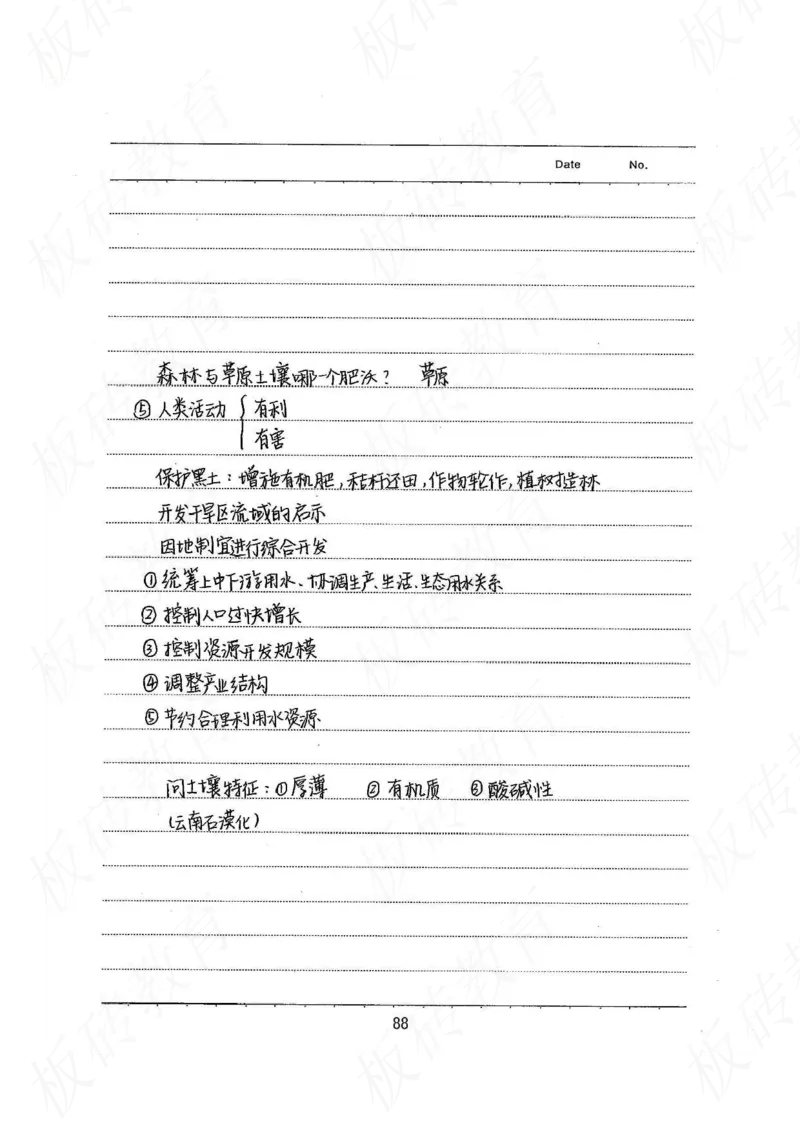 Date No.
森林与草原土壤哪一个肥沃? 草原
⑤ 人类活动 { 有利
有害
保护黑土:增施有机肥,秸秆还田,作物轮作,植树造林
开发干旱区流域的启示
因地制宜进行综合开发
① 统筹上中下游用水、协调生产、生活、生态用水关系
② 控制人口过快增长
③ 控制资源开发规模
④ 调整产业结构
⑤ 节约合理利用水资源.
问土壤特征:① 厚薄 ② 有机质 ③ 酸碱性
(云南石漠化)
88
板砖教育